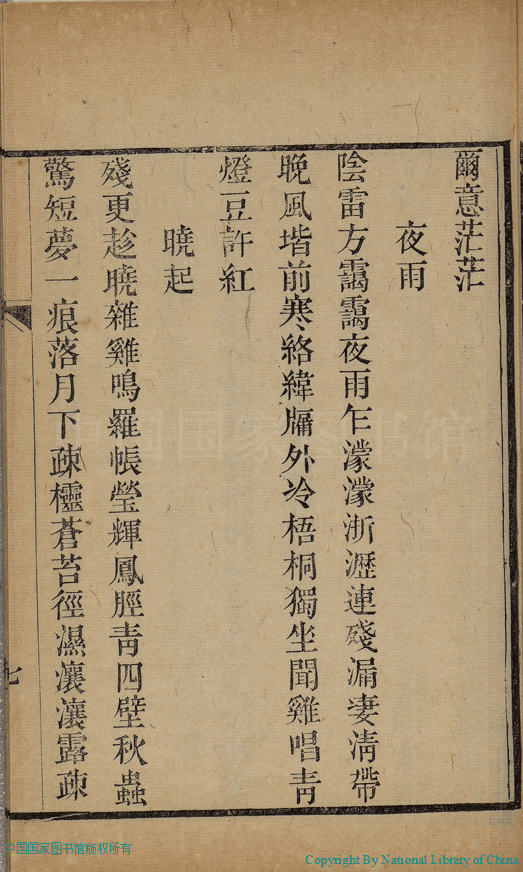 爾意茫茫
夜雨
陰雷方靄靄夜雨乍濛濛淅瀝連殘漏凄淸帶
晚風堦前寒絡緯牖外冷梧桐獨坐聞雞唱靑
燈豆許紅
曉起
殘更趁曉雜雞鳴羅帳瑩輝鳳脛靑四壁秋蟲
驚短夢一痕落月下疎櫺蒼苔徑濕瀼瀼露疎
七
中国国家图书馆版权所有
Copyright By National Library of China